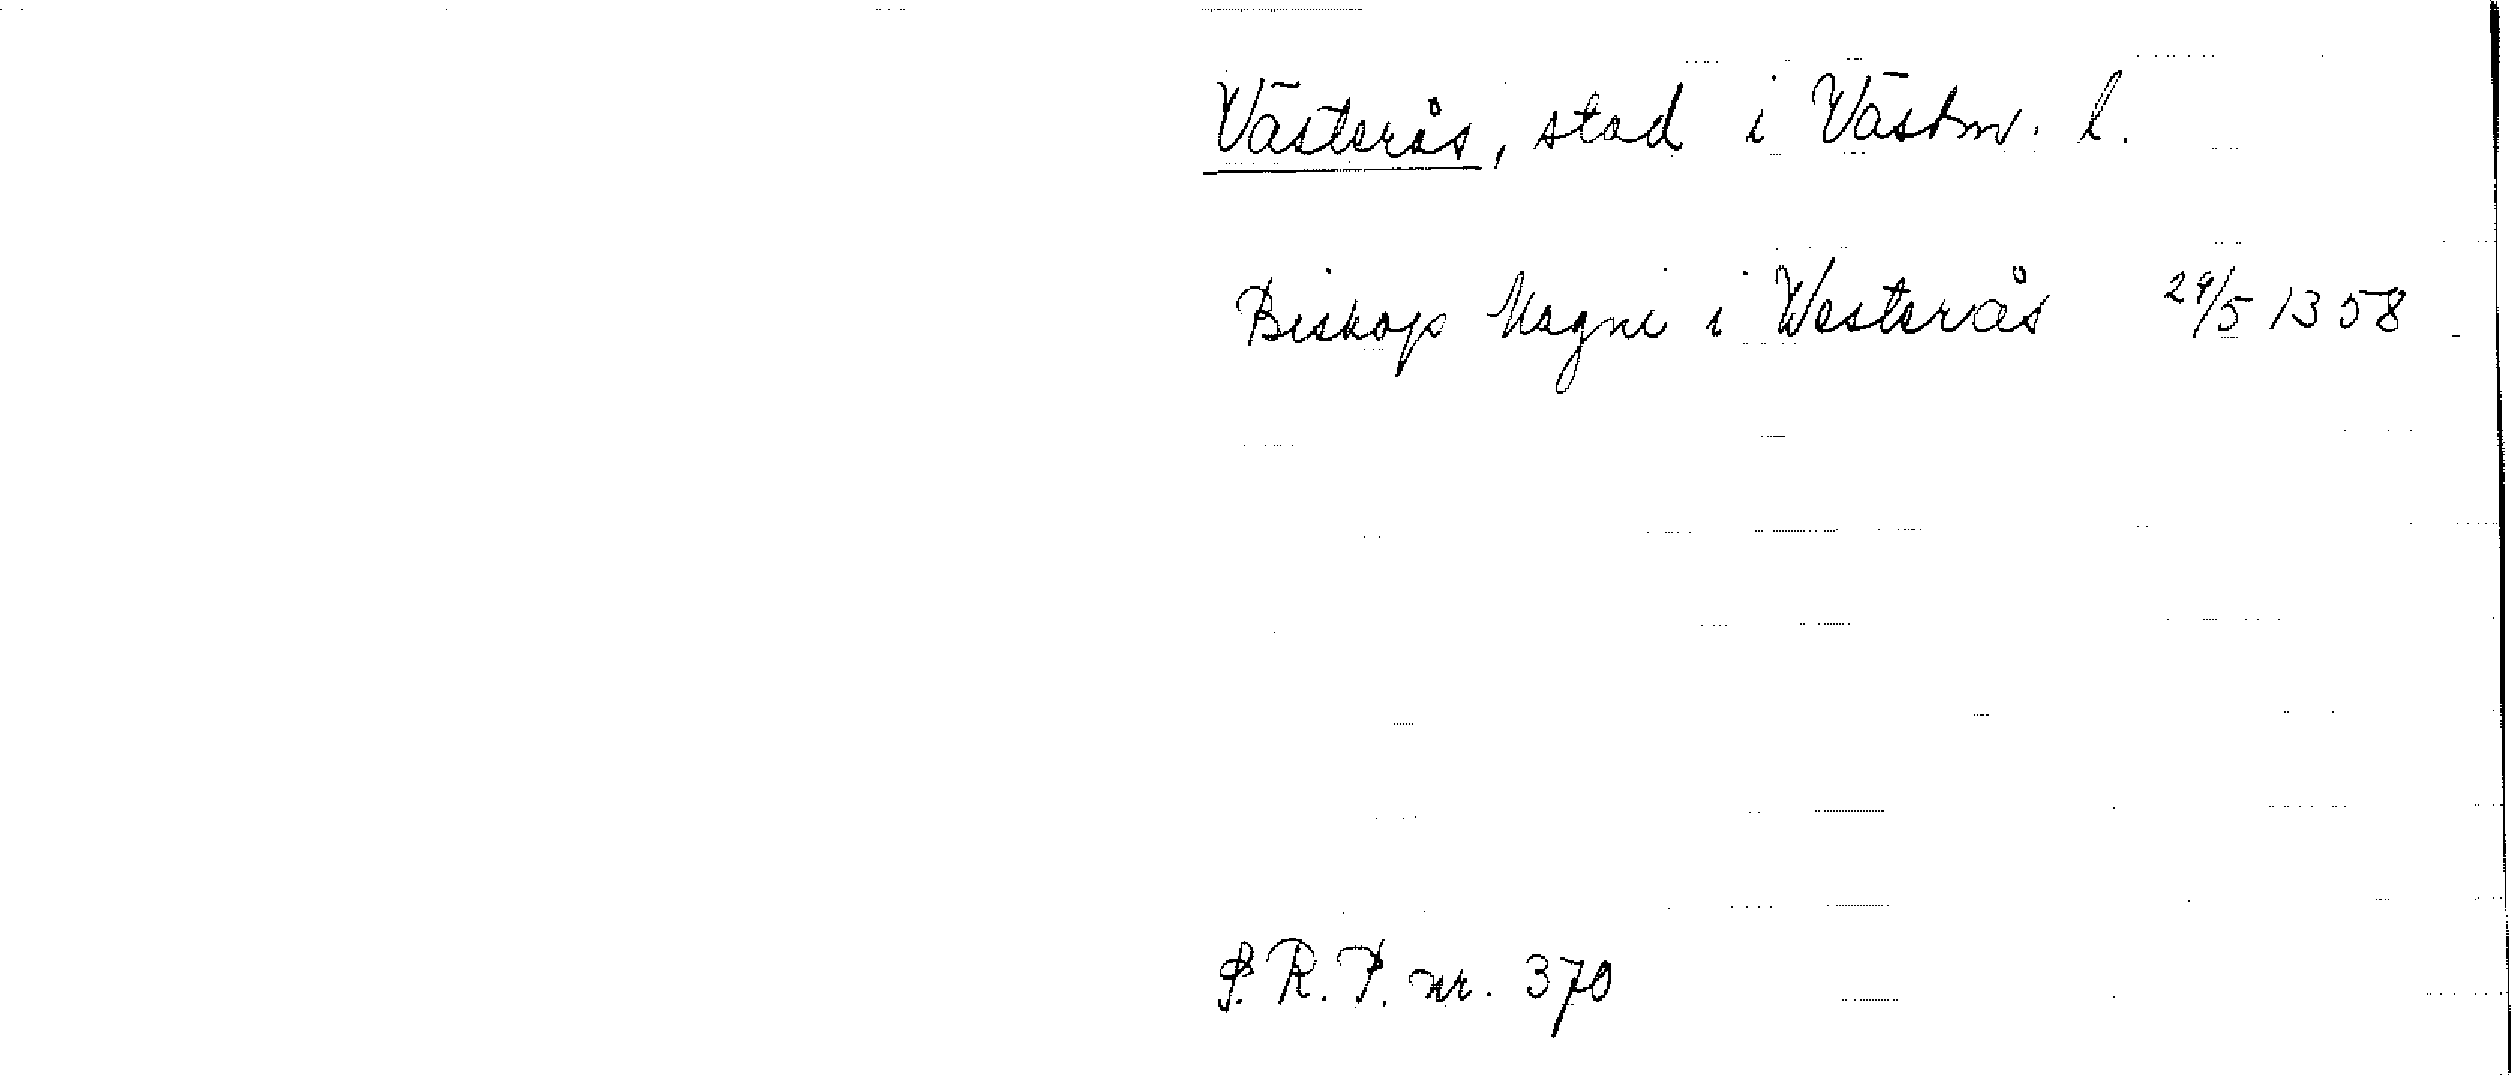 Västerås, stad i Västm. l.
Biskop Magni i Westerås 29/5 1358
S.R.P. nr. 370